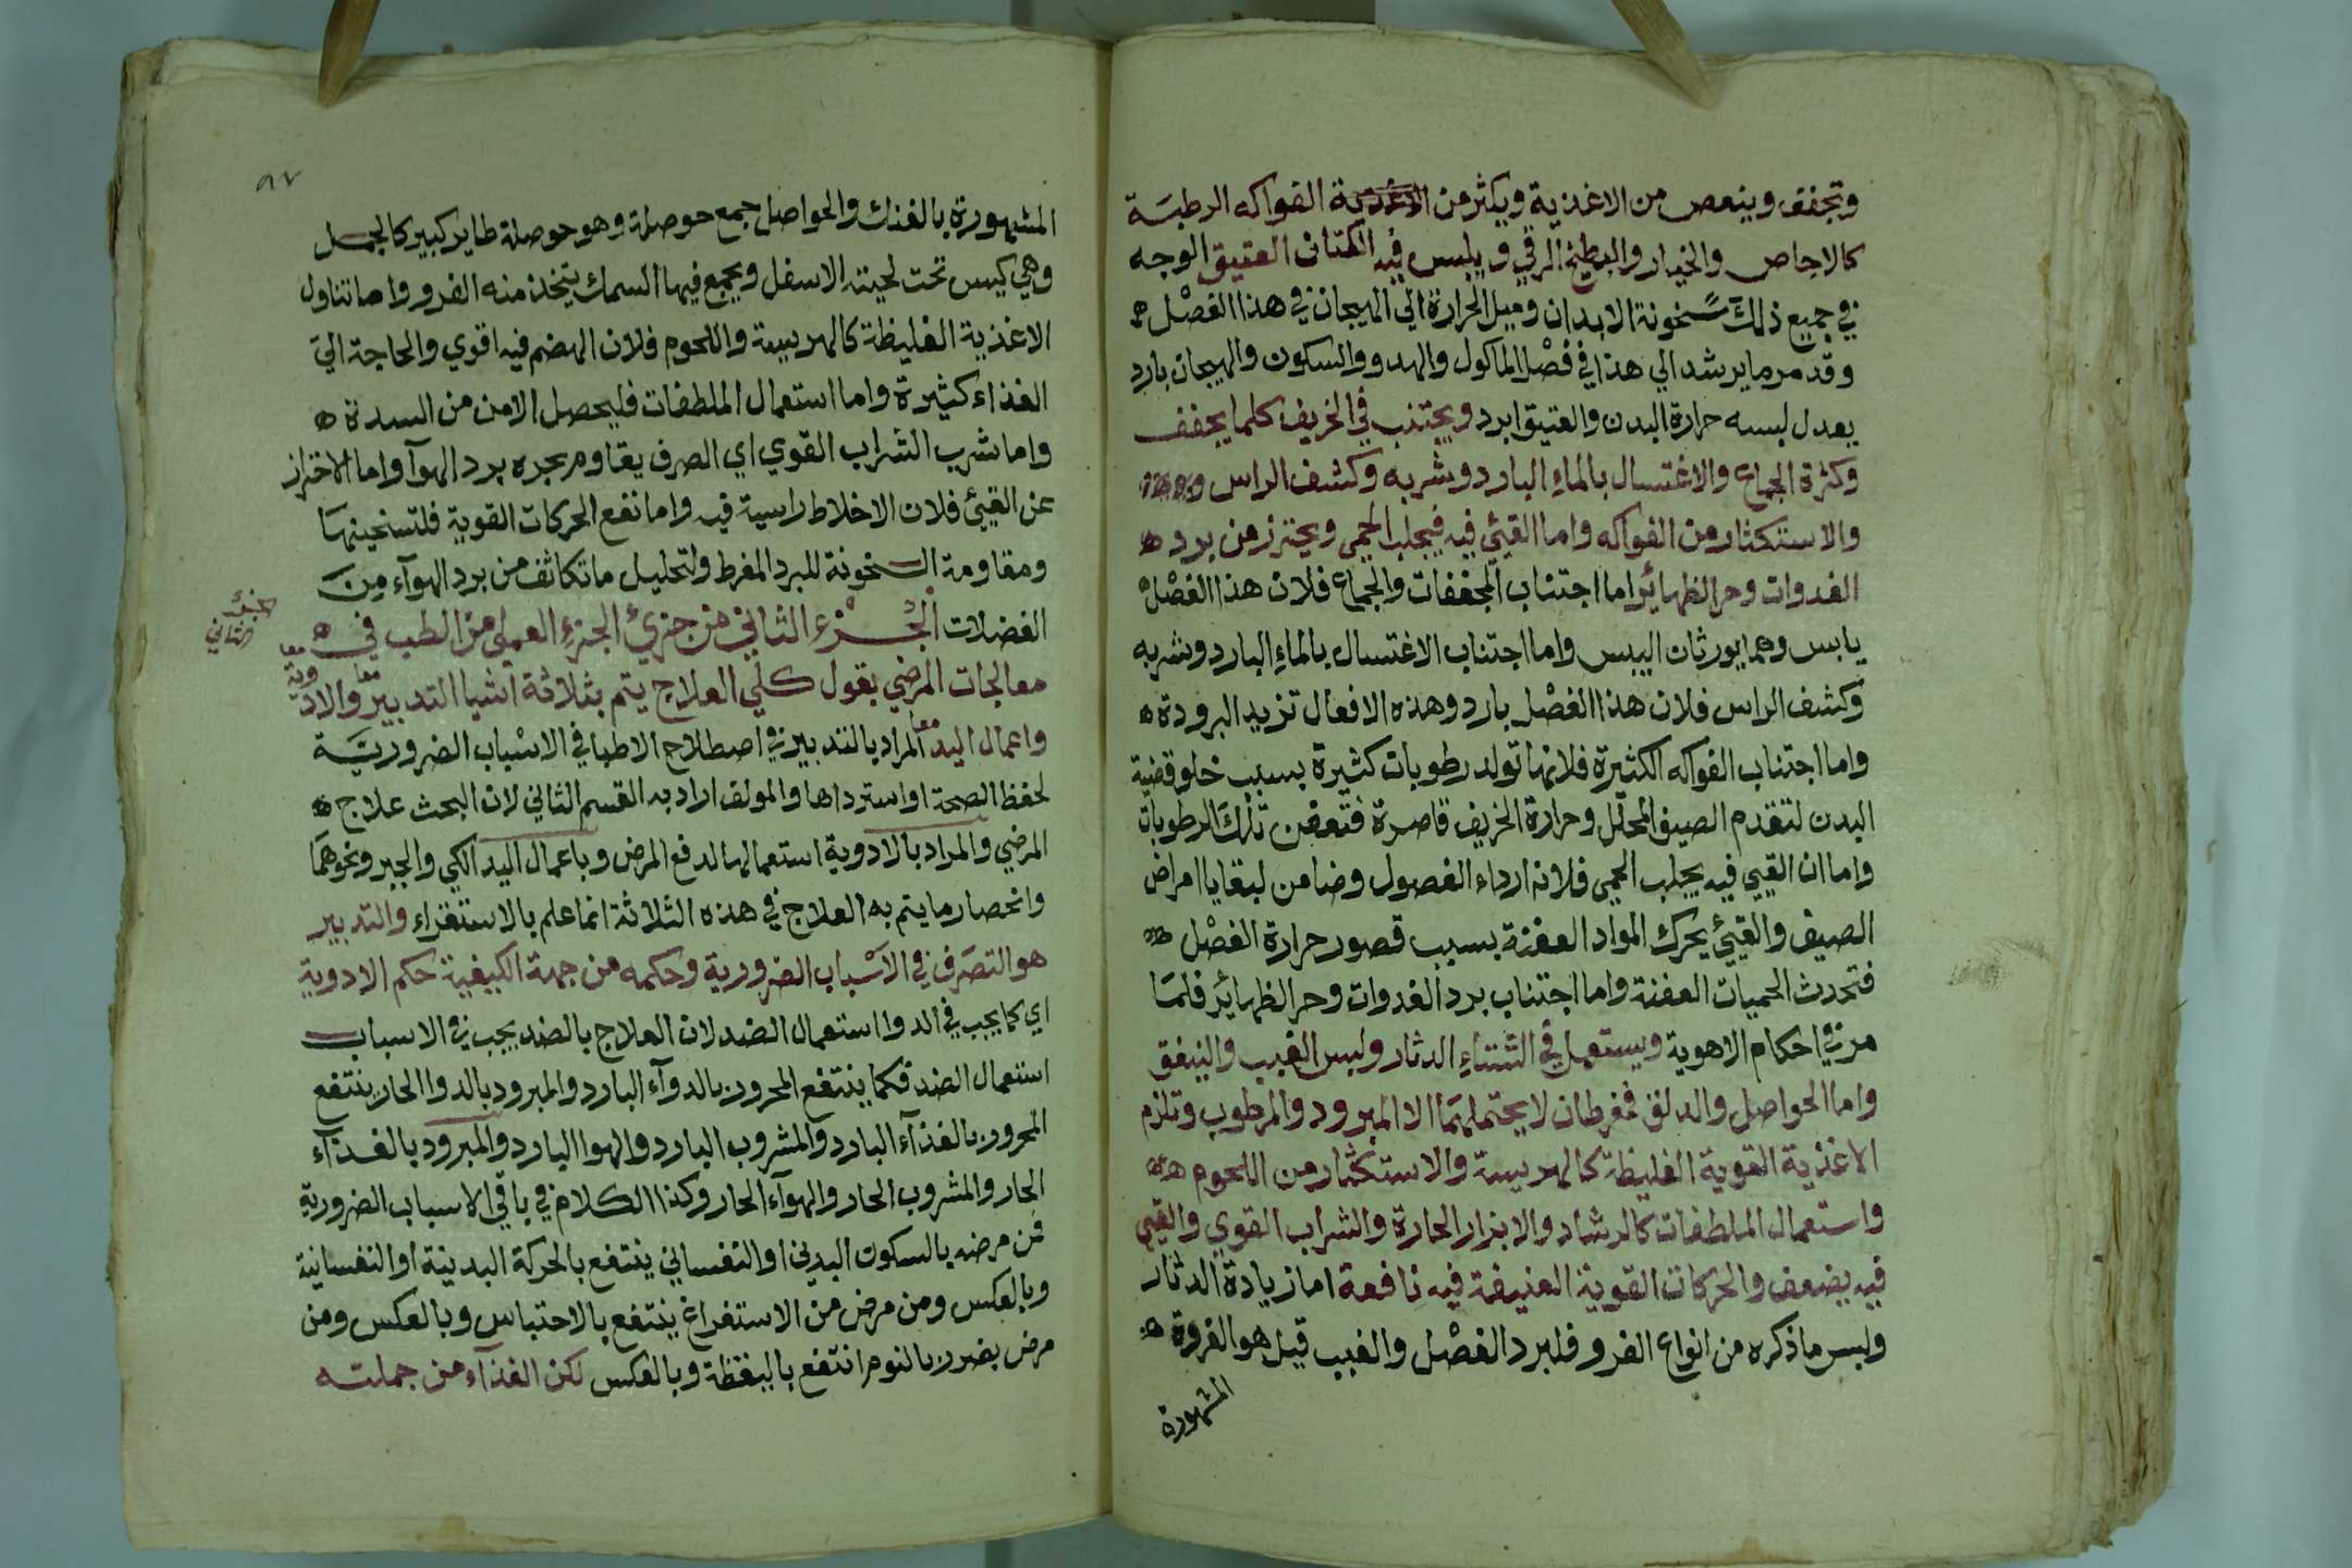 وتجفف وينعص من الاغذية ويكثر من الفواكه الرطبة
كالاجاص والخيار والبطيخ الرقي ويلبس فيه الكتان العتيق الوجه
في جميع ذلك سخونة الابدان وميل الحرارة الي الهيجان في هذا الفصل
وقد مر ما يرشد الي هذا في فصل الماكول والهدو والسكون والهيجان بارد
يعدل لبسه حرارة البدن والعتيق ابرد ويجتنب في الخريف كلما يجفف
وكثرة الجماع والاغتسال بالماء البارد وشربه وكشف الراس
والاستكثار من الفواكه واما القيئ فيه فيجلب الحمي ويحترز من برد
الغدوات وحر الظهائر اما اجتناب المجففات والجماع فلان هذا الفصل
يابس وهما يورثان اليبس واما اجتناب الاغتسال بالماء البارد وشربه
وكشف الراس فلان هذا الفصل بارد وهذه الافعال تزيد البرودة
واما اجتناب الفواكه الكثيرة فلانها تولد رطوبات كثيرة بسبب خلو قضية
البدن لتقدم الصيف المحلل وحرارة الخريف قاصرة فتعفن تلك الرطوبات
واما ان القيي فيه يجلب الحمي فلانه ارداء الفصول وضامن لبقايا امراض
الصيف والقيئ يحرك المواد العفنة بسبب قصور حرارة الفصل
فتحدث الحميات العفنة واما اجتناب برد الغدوات وحر الظهائر فلما
مر في احكام الاهوية ويستعمل في الشتاء الدثار ولبس الغبب والنيفق
واما الحواصل والدلق فمفرطان لا يحتملهما الا المبرود والمرطوب وتلزم
الاغذية القوية الغليظة كالهريسة والاستكثار من اللحوم
واستعمال الملطفات كالرشاد والابزار الحارة والشراب القوي والقيي
فيه يضعف والحركات القوية العنيفة فيه نافعة اما زيادة الدثار
ولبس ما ذكره من انواع الفرو فلبرد الفصل والغبب قيل هو الفروة
المشهورة
٨٧
المشهورة بالفنك والحواصل جمع حوصلة وهو حوصلة طاير كبير كالجمل
وهي كيس تحت لحيته الاسفل ويجمع فيها السمك يتخذ منه الفرو واما تناول
الاغذية الغليظة كالهريسة واللحوم فلان الهضم فيه اقوي والحاجة الي
الغذاء كثيرة واما استعمال الملطفات فليحصل الامن من السدة
واما شرب الشراب القوي اي الصرف يقاوم بحره برد الهوآ واما الاحتراز
عن القيئ فلان الاخلاط راسية فيه واما نفع الحركات القوية فلتسخينها
ومقاومة السخونة للبرد المفرط ولتحليل ما تكاثف من برد الهوآء من
الفضلات الجزء الثاني من جزئ الجزء العملي من الطب في
الجزء
الثاني
معالجات المرضي يقول كلي العلاج يتم بثلاثة اشيا التدبير والادوية
واعمال اليد المراد بالتدبير في اصطلاح الاطبا في الاسباب الضرورية
لحفظ الصحة او استردادها والمولف اراد به القسم الثاني لان البحث علاج
المرضي والمراد بالادوية استعمالها لدفع المرض وباعمال اليد الكي والجبر ونحوهما
وانحصار ما يتم به العلاج في هذه الثلاثة انما علم بالاستقراء والتدبير
هو التصرف في الاسباب الضرورية وحكمه من جهة الكيفية حكم الادوية
اي كما يجب في الدوا استعمال الضد لان العلاج بالضد يجب في الاسباب
استعمال الضد فكما ينتفع المحرور بالدوآء البارد والمبرود بالدوا الحار ينتفع
المحرور بالغذآء البارد والمشروب البارد والهوا البارد والمبرود بالغذآء
الحار والمشروب الحار والهوآء الحار وكذا الكلام في باقي الاسباب الضرورية
فمن مرضه بالسكون البدني او النفساني ينتفع بالحركة البدنية او النفسانية
وبالعكس ومن مرض من الاستفراغ ينتفع بالاحتباس وبالعكس ومن
مرض بضرر بالنوم انتفع باليقظة وبالعكس لكن الغذآء من جملته